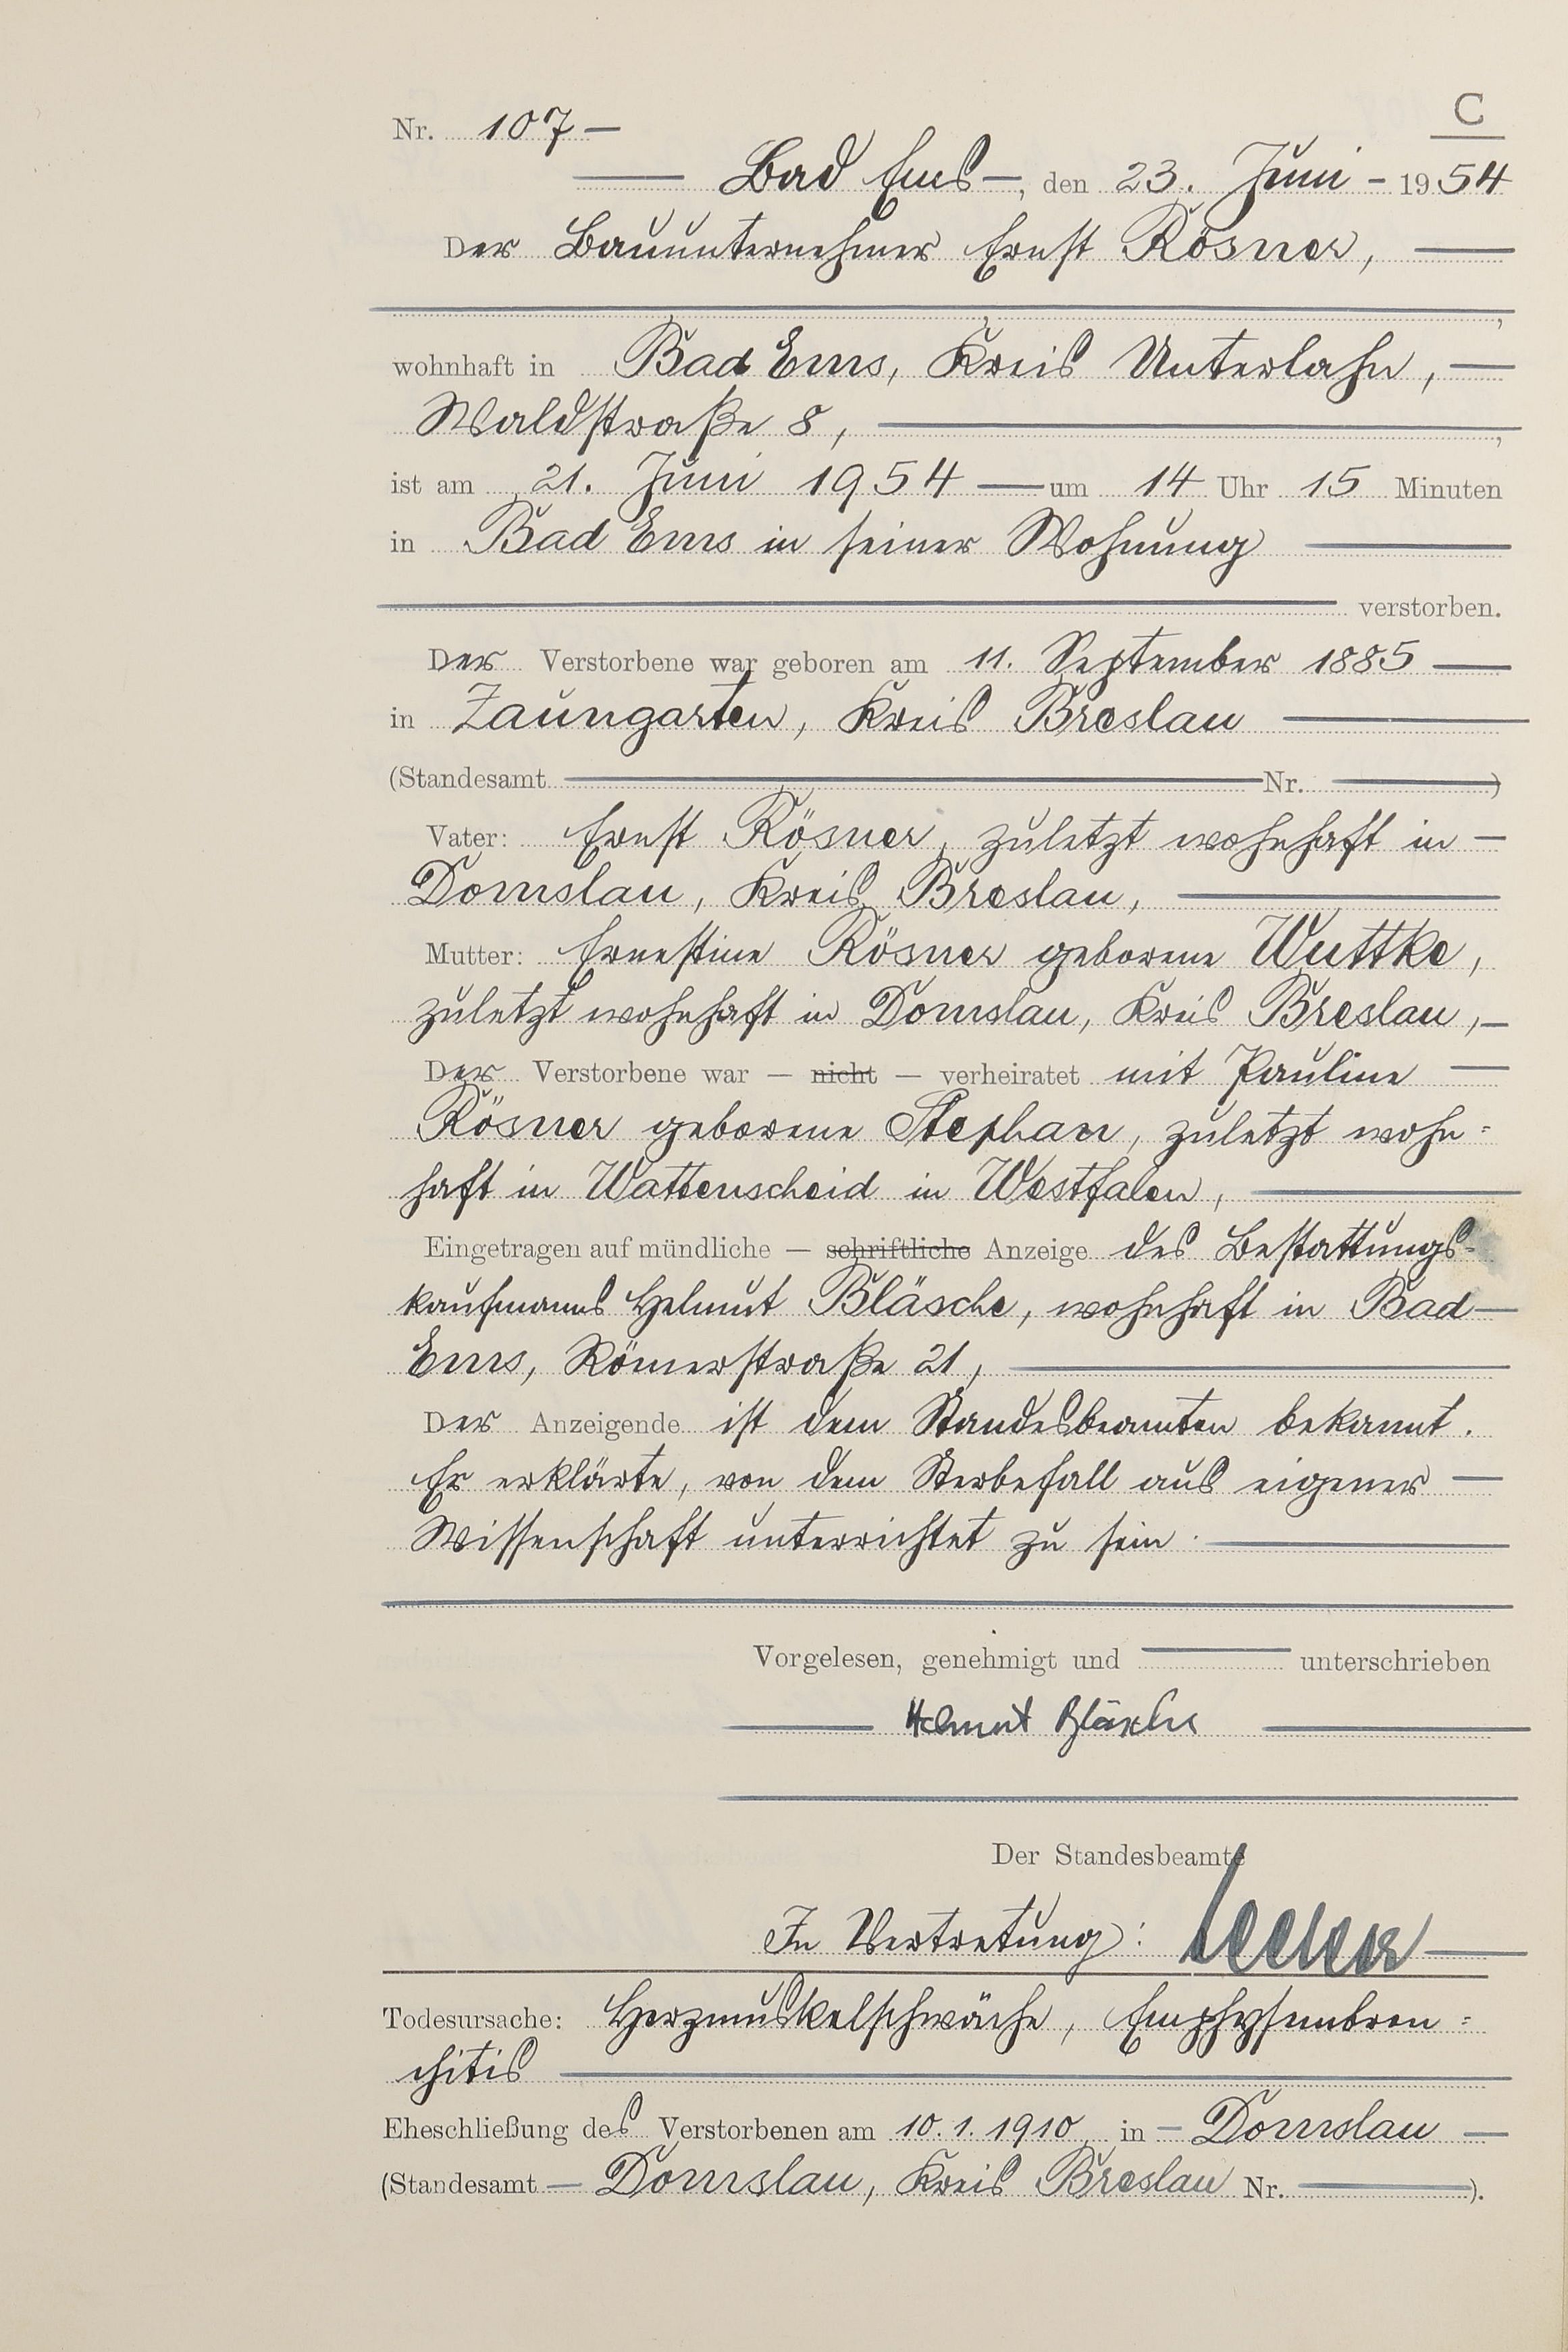 C
Nr. 107 —
— Bad Ems —, den 23. Juni - 1954
Der Bauunternehmer Ernst Rösner, —
wohnhaft in Bad Ems, Kreis Unterlahn, —
Waldstraße 8, —
ist am 21. Juni 1954 — um 14 Uhr 15 Minuten
in Bad Ems in seiner Wohnung —
— verstorben.
Der Verstorbene war geboren am 11. September 1885 —
in Zaungarten, Kreis Breslau —
(Standesamt — Nr. —)
Vater: Ernst Rösner, zuletzt wohnhaft in —
Domslau, Kreis Breslau, —
Mutter: Ernestine Rösner geborene Wuttke,
zuletzt wohnhaft in Domslau, Kreis Breslau, —
Der Verstorbene war — nicht — verheiratet mit Pauline —
Rösner geborene Stephan, zuletzt wohn=
haft in Wattenscheid in Westfalen, —
Eingetragen auf mündliche — schriftliche Anzeige des Bestattungs-
kaufmanns Helmut Bläsche, wohnhaft in Bad —
Ems, Römerstraße 21, —
Der Anzeigende ist dem Standesbeamten bekannt.
Er erklärte, von dem Sterbefall aus eigener —
Wissenschaft unterrichtet zu sein. —
Vorgelesen, genehmigt und — unterschrieben
— Helmut Bläsche —
Der Standesbeamte
In Vertretung: —
Todesursache: Herzmuskelschwäche, Emphysembron=
chitis —
Eheschließung des Verstorbenen am 10.1.1910 in — Domslau —
(Standesamt — Domslau, Kreis Breslau Nr. —).